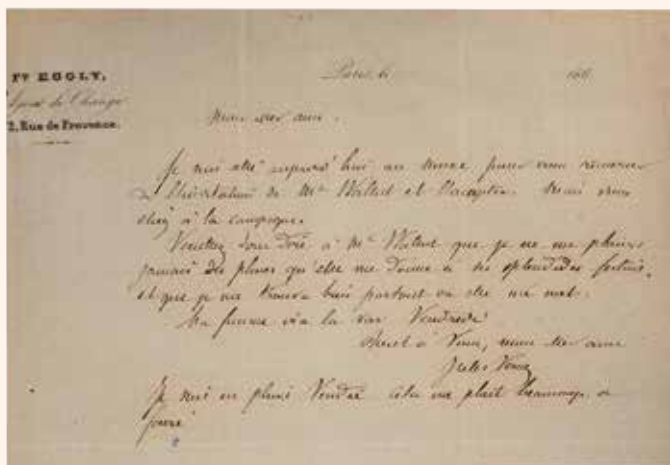 Fr EGGLY,
Agent de Change
2, Rue de Provence.
Paris, le 186
Mon cher ami.
Je suis allé aujourd'hui au pour vous remercier
de l'invitation de Me et l'accepter. Mais vous
étiez à la campagne.
Veuillez donc dire à Me que je ne me plains
jamais des places qu'elle me donne à ses splendides festins,
et que je me trouve bien partout où elle me met.
Ma femme ira la voir Vendredi
à vous, mon cher ami
Jules Verne
Je suis en plein Cela me plait beaucoup, à